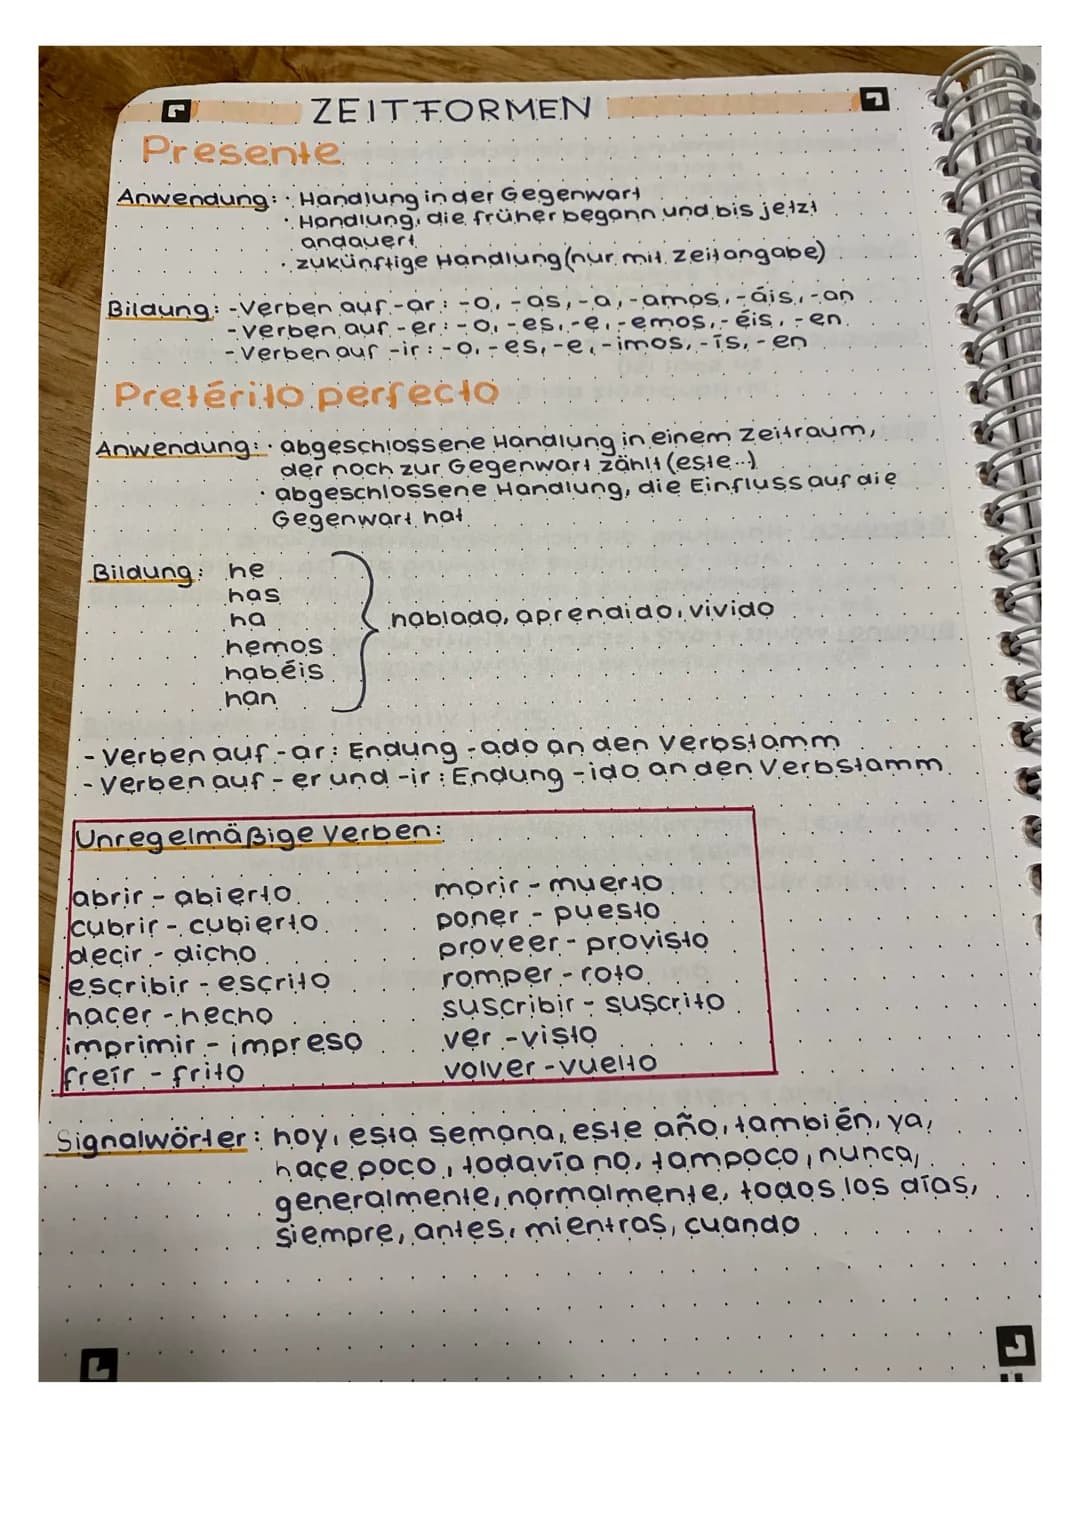 ZEITFORMEN
Presente
Anwendung: · Handlung in der Gegenwart
· Handlung, die früher begann und bis jetzt
andauert
· zukünftige Handlung (nur mit Zeitangabe)
Bildung: - Verben auf -ar: -o, -as, -a, -amos, -áis, -an
- Verben auf -er: -o, -es, -e, -emos, -éis, -en
- Verben auf -ir: -o, -es, -e, -imos, -ís, -en
Pretérito perfecto
Anwendung: · abgeschlossene Handlung in einem Zeitraum,
der noch zur Gegenwart zählt (este...)
· abgeschlossene Handlung, die Einfluss auf die
Gegenwart hat
Bildung: he
has
ha
hemos
habéis
han
hablado, aprendido, vivido
- Verben auf -ar: Endung -ado an den Verbstamm
- Verben auf -er und -ir: Endung -ido an den Verbstamm
Unregelmäßige Verben:
abrir - abierto
cubrir - cubierto
decir - dicho
escribir - escrito
hacer - hecho
imprimir - impreso
freír - frito
morir - muerto
poner - puesto
proveer - provisto
romper - roto
suscribir - suscrito
ver - visto
volver - vuelto
Signalwörter: hoy, esta semana, este año, también, ya,
hace poco, todavía no, tampoco, nunca,
generalmente, normalmente, todos los días,
siempre, antes, mientras, cuando